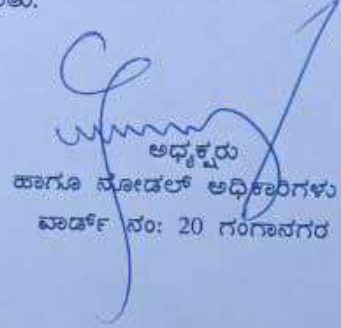 ಅಧ್ಯಕ್ಷರು
ಹಾಗೂ ನೋಡಲ್ ಅಧಿಕಾರಿಗಳು
ವಾರ್ಡ್ ನಂ: 20 ಗಂಗಾನಗರ